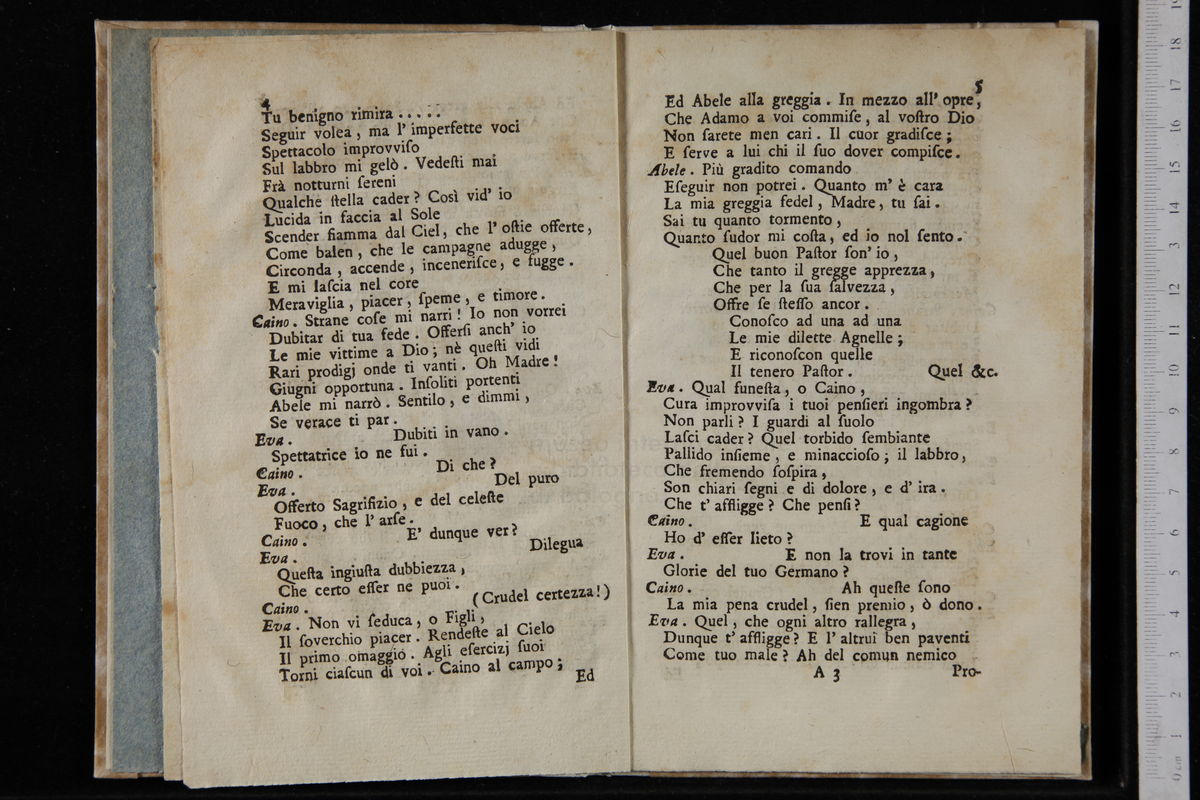 4
Tu benigno rimira . . . . .
Seguir volea, ma l' imperfette voci
Spettacolo improvviſo
Sul labbro mi gelò. Vedeſti mai
Frà notturni ſereni
Qualche ſtella cader? Così vid' io
Lucida in faccia al Sole
Scender fiamma dal Ciel, che l' oſtie offerte,
Come balen, che le campagne adugge,
Circonda, accende, inceneriſce, e fugge.
E mi laſcia nel core
Meraviglia, piacer, ſpeme, e timore.
Caino. Strane coſe mi narri! Io non vorrei
Dubitar di tua fede. Offerſi anch' io
Le mie vittime a Dio; nè queſti vidi
Rari prodigj onde ti vanti. Oh Madre!
Giugni opportuna. Inſoliti portenti
Abele mi narrò. Sentilo, e dimmi,
Se verace ti par.
Eva. Dubiti in vano.
Spettatrice io ne fui.
Caino. Di che?
Eva. Del puro
Offerto Sagrifizio, e del celeſte
Fuoco, che l' arſe.
Caino. E' dunque ver?
Eva. Dilegua
Queſta ingiuſta dubbiezza,
Che certo eſſer ne puoi.
Caino. (Crudel certezza!)
Eva. Non vi ſeduca, o Figli,
Il ſoverchio piacer. Rendeſte al Cielo
Il primo omaggio. Agli eſercizj ſuoi
Torni ciaſcun di voi. Caino al campo;
Ed
5
Ed Abele alla greggia. In mezzo all' opre,
Che Adamo a voi commiſe, al voſtro Dio
Non ſarete men cari. Il cuor gradiſce;
E ſerve a lui chi il ſuo dover compiſce.
Abele. Più gradito comando
Eſeguir non potrei. Quanto m' è cara
La mia greggia fedel, Madre, tu ſai.
Sai tu quanto tormento,
Quanto ſudor mi coſta, ed io nol ſento.
Quel buon Paſtor ſon' io,
Che tanto il gregge apprezza,
Che per la ſua ſalvezza,
Offre ſe ſteſſo ancor.
Conoſco ad una ad una
Le mie dilette Agnelle;
E riconoſcon quelle
Il tenero Paſtor. Quel &c.
Eva. Qual funeſta, o Caino,
Cura improvviſa i tuoi penſieri ingombra?
Non parli? I guardi al ſuolo
Laſci cader? Quel torbido ſembiante
Pallido inſieme, e minaccioſo; il labbro,
Che fremendo ſoſpira,
Son chiari ſegni e di dolore, e d' ira.
Che t' affligge? Che penſi?
Caino. E qual cagione
Ho d' eſſer lieto?
Eva. E non la trovi in tante
Glorie del tuo Germano?
Caino. Ah queſte ſono
La mia pena crudel, ſien premio, ò dono.
Eva. Quel, che ogni altro rallegra,
Dunque t' affligge? E l' altrui ben paventi
Come tuo male? Ah del comun nemico
A 3 Pro-